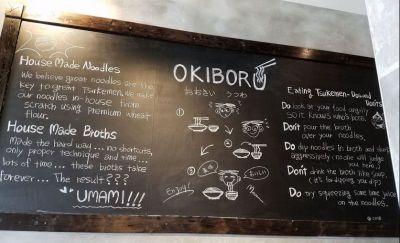 House Made Noodles
We believe great noodles are the
key to great Tsukemen. We make
our noodles in-house from
scratch using premium wheat
flour.
House Made Broths
Made the hard way... no shortcuts,
only proper technique and time...
lots of time... these broths take
forever... The result???
UMAMI!!!
OKIBORU
おおきい うつわ
①
②
③
Enjoy!
Eating Tsukemen - Do's and
Don'ts
Do look at your food angrily
so it knows who's boss.
Don't pour the broth
over your noodles.
Do dip noodles in broth and slurp
aggressively, no one will judge
you here.
Don't drink the broth like soup,
(it's for dipping you dip)
Do try squeezing some lime juice
on the noodles.